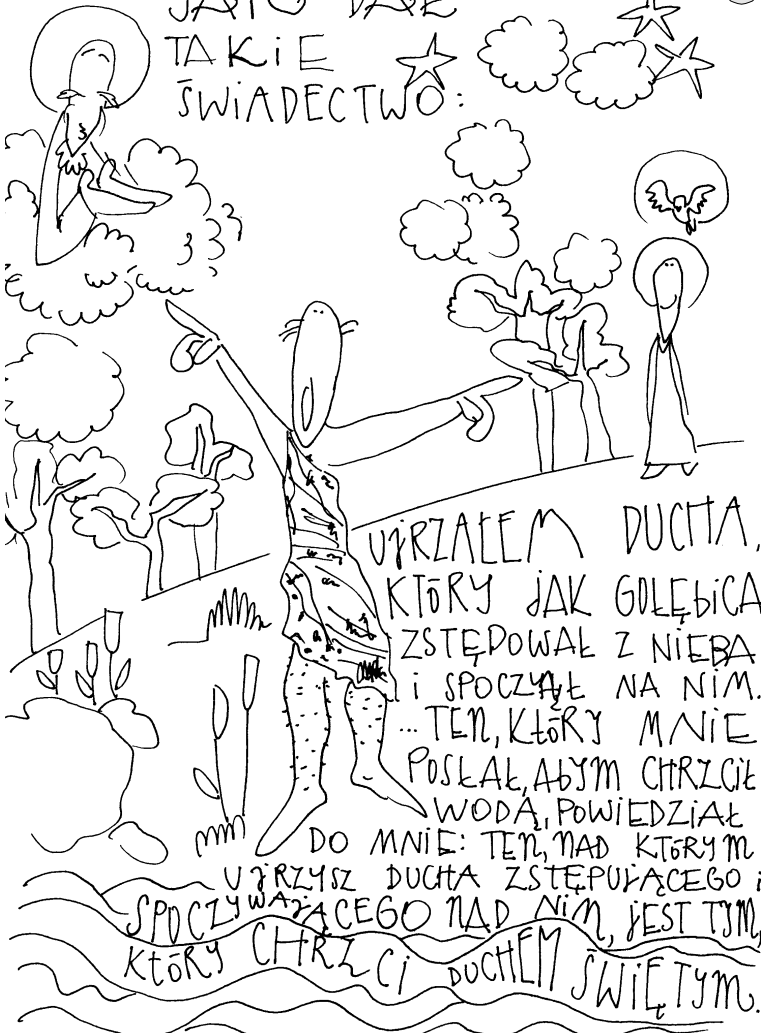 JAK O DAŁ
TAKIE
ŚWIADECTWO:
UJRZAŁEM DUCHA,
KTÓRY JAK GOŁĘBICA
ZSTĘPOWAŁ Z NIEBA
I SPOCZĄŁ NA NIM.
... TEN, KTÓRY MNIE
POSŁAŁ, ABYM CHRZCIŁ
WODĄ, POWIEDZIAŁ
DO MNIE: TEN, NAD KTÓRYM
UJRZYSZ DUCHA ZSTĘPUJĄCEGO i
SPOCZYWAJĄCEGO NAD NIM, JEST TYM,
KTÓRY CHRZCI DUCHEM ŚWIĘTYM.